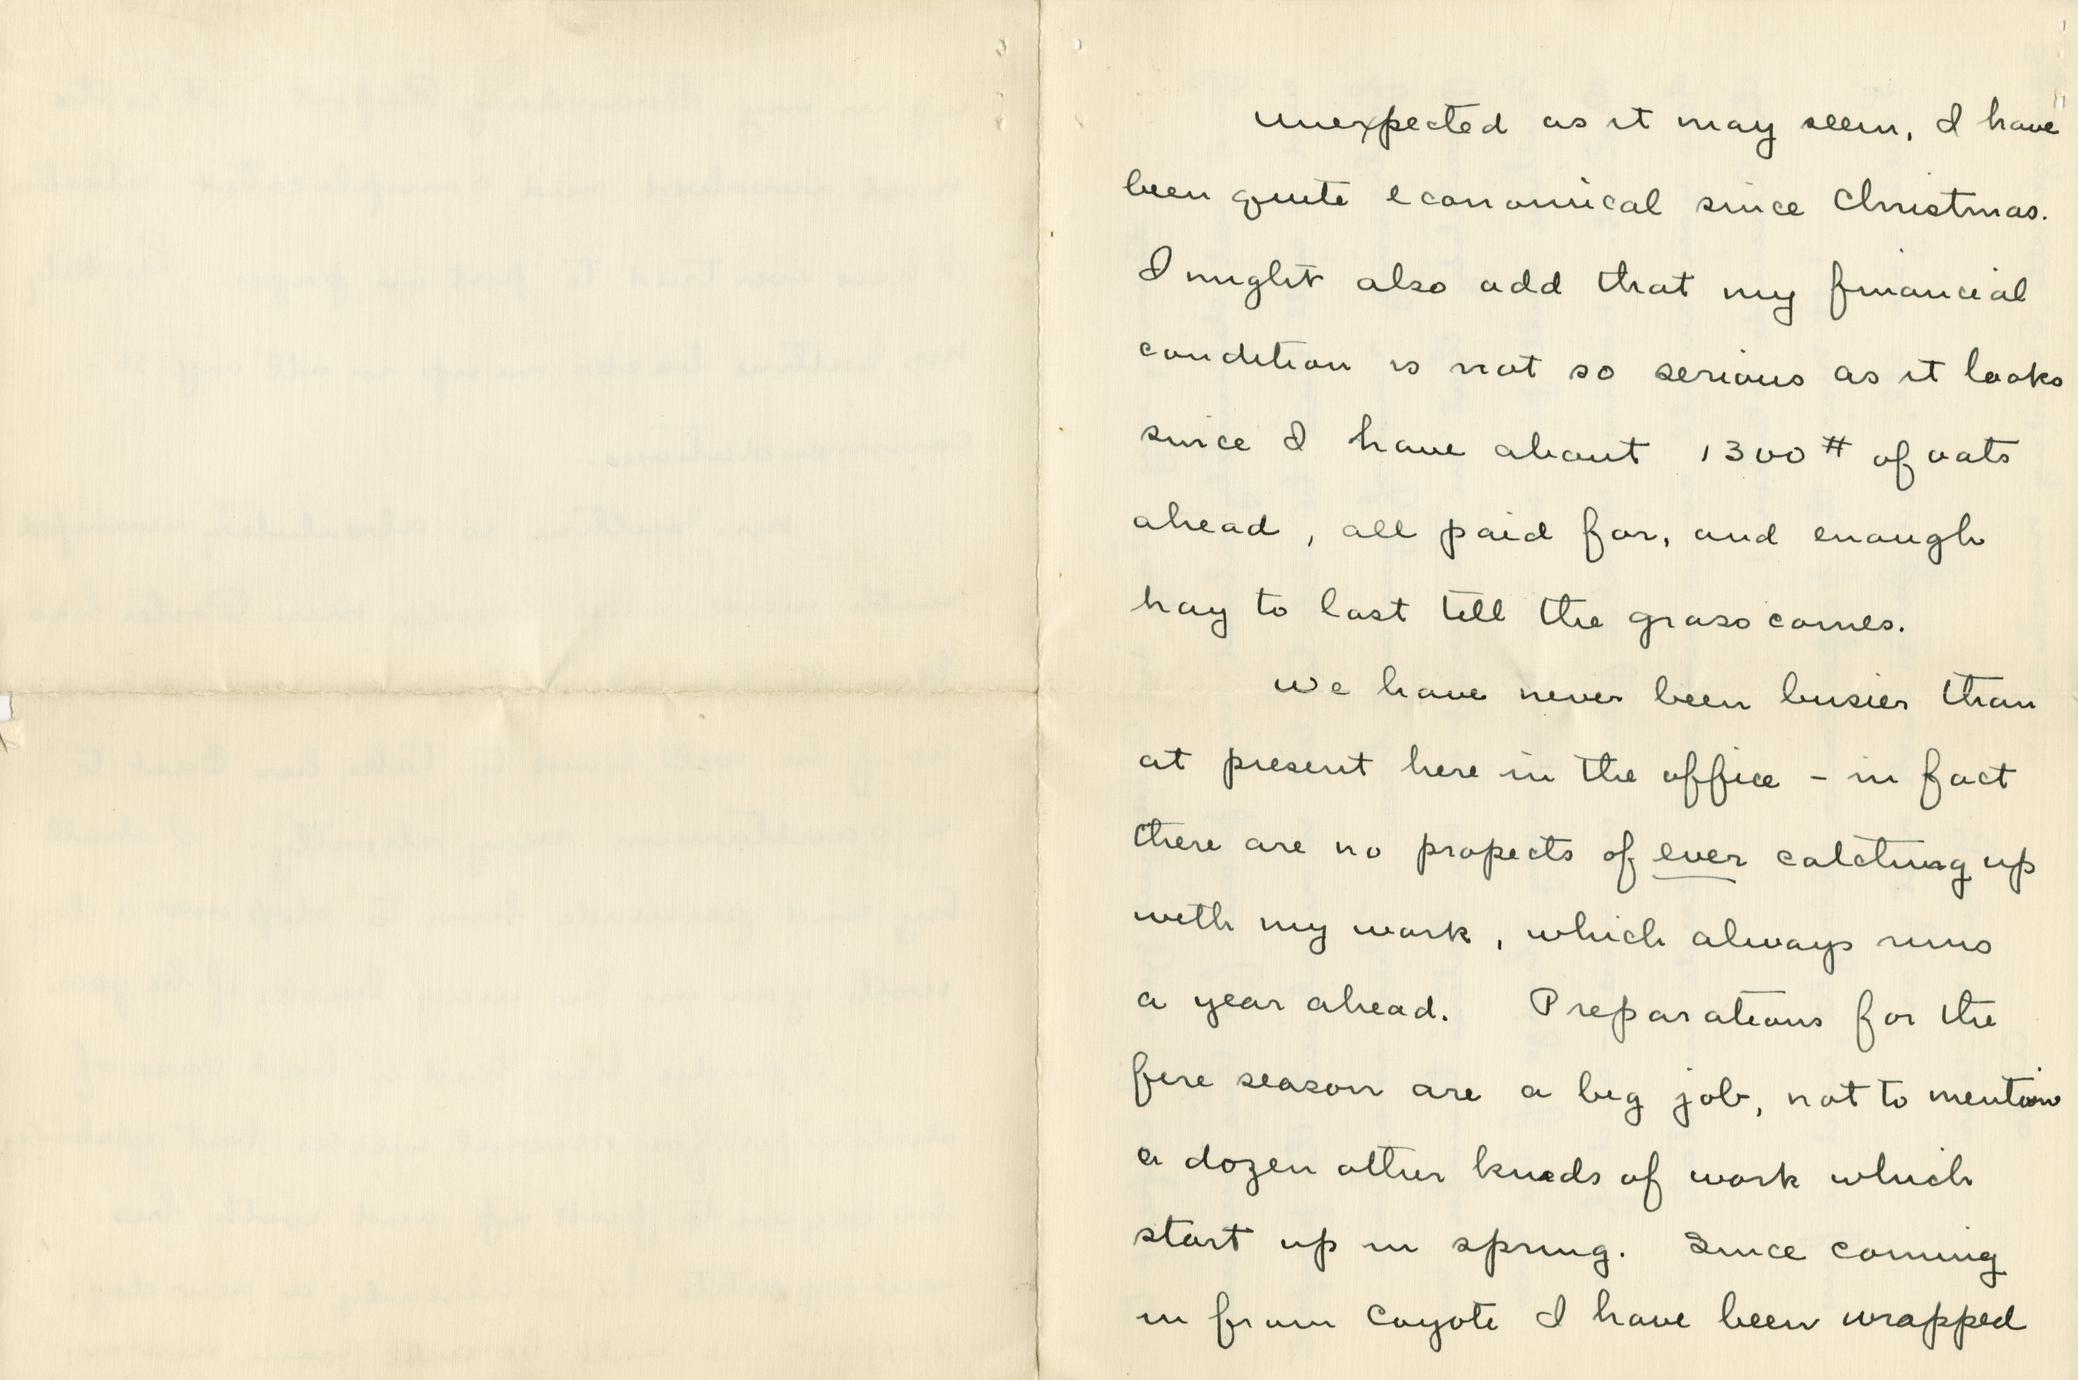 unexpected as it may seem, I have
been quite economical since Christmas.
I might also add that my financial
condition is not so serious as it looks
since I have about 1300 # of oats
ahead, all paid for, and enough
hay to last till the grass comes.
We have never been busier than
at present here in the office - in fact
there are no propects of ever catching up
with my work, which always runs
a year ahead. Preparations for the
fire season are a big job, not to mention
a dozen other kinds of work which
start up in spring. Since coming
in from Coyote I have been wrapped